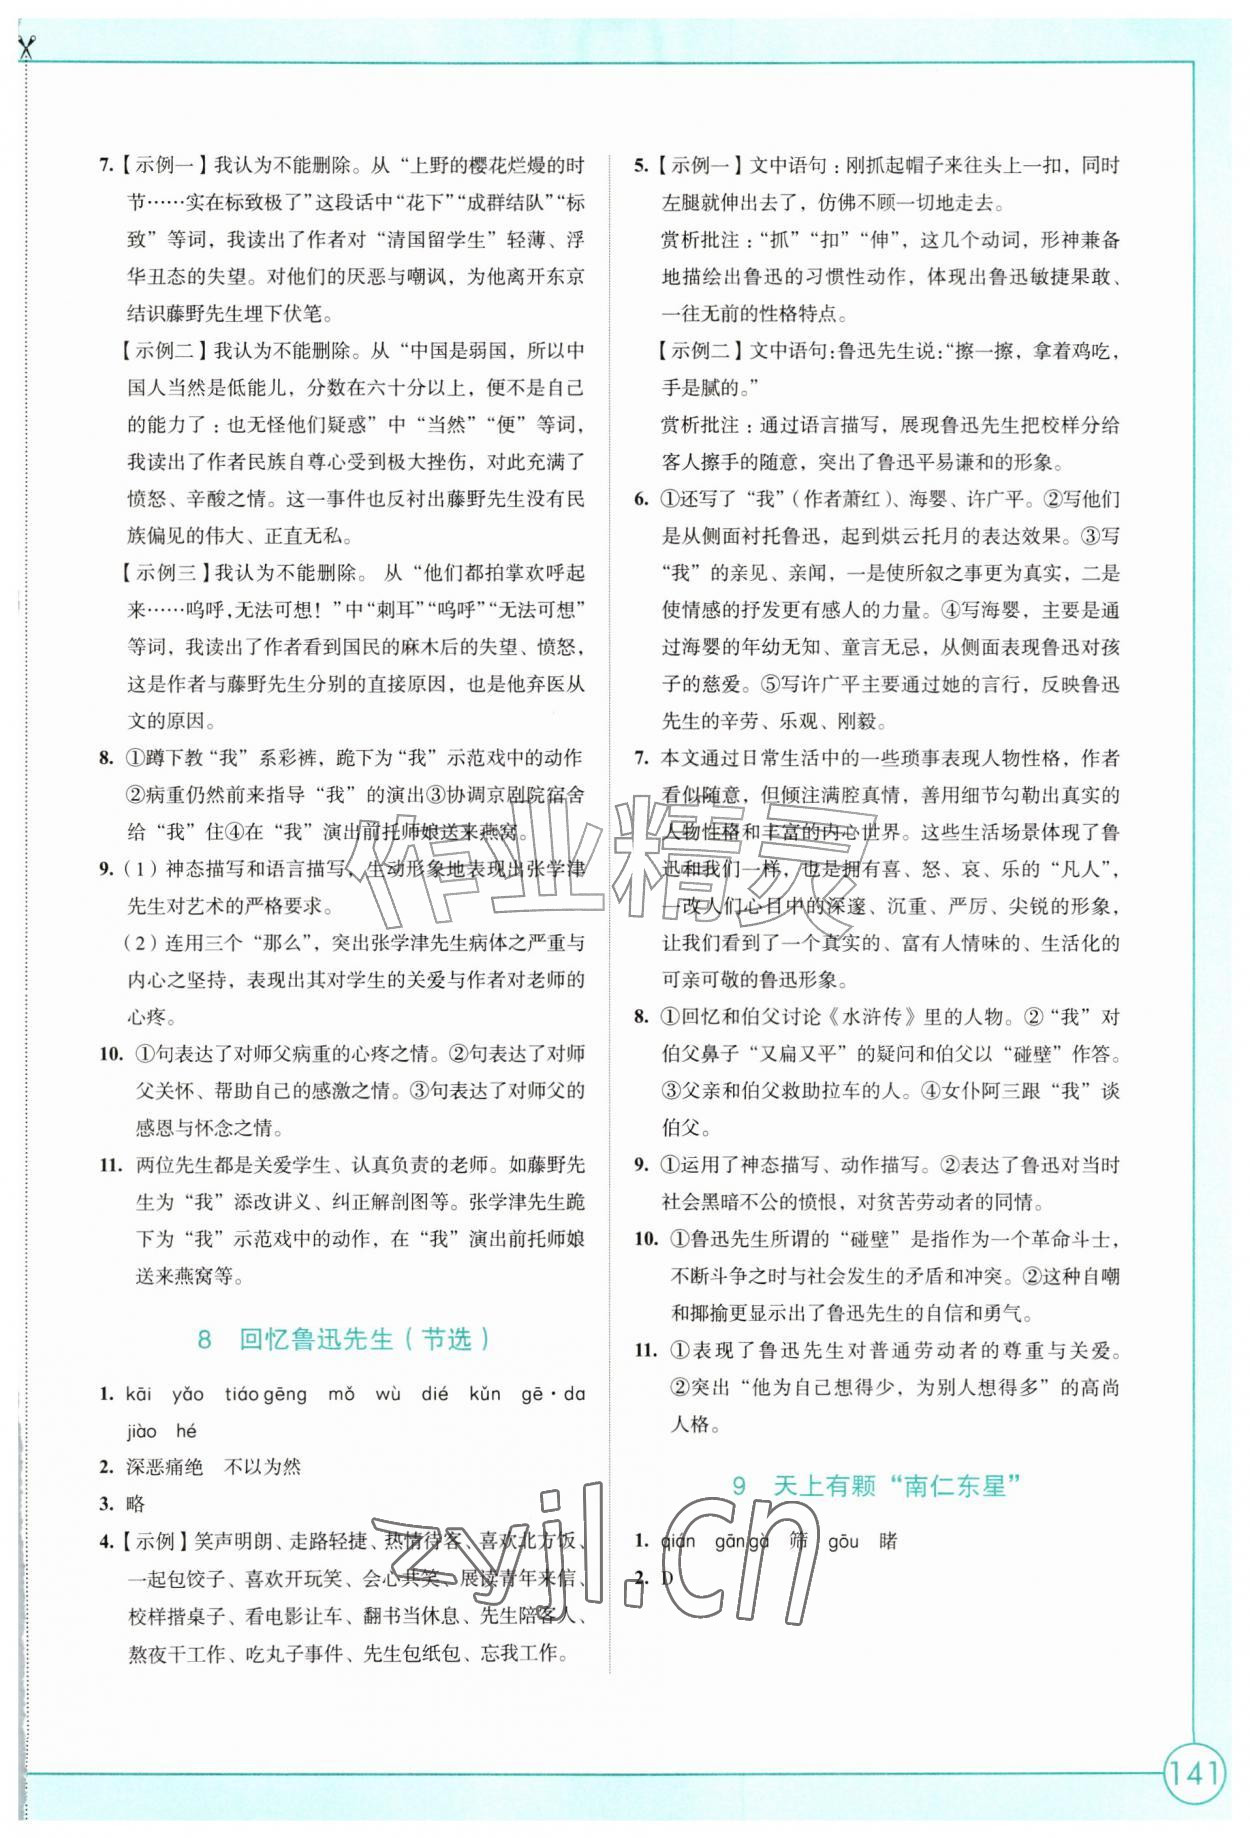 7.【示例一】我认为不能删除。从“上野的樱花烂熳的时
节……实在标致极了”这段话中“花下”“成群结队”“标
致”等词，我读出了作者对“清国留学生”轻薄、浮
华丑态的失望。对他们的厌恶与嘲讽，为他离开东京
结识藤野先生埋下伏笔。
【示例二】我认为不能删除。从“中国是弱国，所以中
国人当然是低能儿，分数在六十分以上，便不是自己
的能力了：也无怪他们疑惑”中“当然”“便”等词，
我读出了作者民族自尊心受到极大挫伤，对此充满了
愤怒、辛酸之情。这一事件也反衬出藤野先生没有民
族偏见的伟大、正直无私。
【示例三】我认为不能删除。从“他们都拍掌欢呼起
来……呜呼,无法可想！”中“刺耳”“呜呼”“无法可想”
等词，我读出了作者看到国民的麻木后的失望、愤怒，
这是作者与藤野先生分别的直接原因，也是他弃医从
文的原因。
8. ①蹲下教“我”系彩裤，跪下为“我”示范戏中的动作
②病重仍然前来指导“我”的演出③协调京剧院宿舍
给“我”住④在“我”演出前托师娘送来燕窝。
9.（1）神态描写和语言描写，生动形象地表现出张学津
先生对艺术的严格要求。
（2）连用三个“那么”，突出张学津先生病体之严重与
内心之坚持，表现出其对学生的关爱与作者对老师的
心疼。
10. ①句表达了对师父病重的心疼之情。②句表达了对师
父关怀、帮助自己的感激之情。③句表达了对师父的
感恩与怀念之情。
11. 两位先生都是关爱学生、认真负责的老师。如藤野先
生为“我”添改讲义、纠正解剖图等。张学津先生跪
下为“我”示范戏中的动作，在“我”演出前托师娘
送来燕窝等。
8 回忆鲁迅先生（节选）
1. kāi yǎo tiáo gēng mǒ wù dié kǔn gē·da
jiào hé
2. 深恶痛绝 不以为然
3. 略
4.【示例】笑声明朗、走路轻捷、热情待客、喜欢北方饭、
一起包饺子、喜欢开玩笑、会心共笑、展读青年来信、
校样揩桌子、看电影让车、翻书当休息、先生陪客人、
熬夜干工作、吃丸子事件、先生包纸包、忘我工作。
5.【示例一】文中语句：刚抓起帽子来往头上一扣，同时
左腿就伸出去了，仿佛不顾一切地走去。
赏析批注：“抓”“扣”“伸”，这几个动词，形神兼备
地描绘出鲁迅的习惯性动作，体现出鲁迅敏捷果敢、
一往无前的性格特点。
【示例二】文中语句：鲁迅先生说：“擦一擦，拿着鸡吃，
手是腻的。”
赏析批注：通过语言描写，展现鲁迅先生把校样分给
客人擦手的随意，突出了鲁迅平易谦和的形象。
6. ①还写了“我”（作者萧红）、海婴、许广平。②写他们
是从侧面衬托鲁迅，起到烘云托月的表达效果。③写
“我”的亲见、亲闻，一是使所叙之事更为真实，二是
使情感的抒发更有感人的力量。④写海婴，主要是通
过海婴的年幼无知、童言无忌，从侧面表现鲁迅对孩
子的慈爱。⑤写许广平主要通过她的言行，反映鲁迅
先生的辛劳、乐观、刚毅。
7. 本文通过日常生活中的一些琐事表现人物性格，作者
看似随意，但倾注满腔真情，善用细节勾勒出真实的
人物性格和丰富的内心世界。这些生活场景体现了鲁
迅和我们一样，也是拥有喜、怒、哀、乐的“凡人”，
一改人们心目中的深邃、沉重、严厉、尖锐的形象，
让我们看到了一个真实的、富有人情味的、生活化的
可亲可敬的鲁迅形象。
8. ①回忆和伯父讨论《水浒传》里的人物。②“我”对
伯父鼻子“又扁又平”的疑问和伯父以“碰壁”作答。
③父亲和伯父救助拉车的人。④女仆阿三跟“我”谈
伯父。
9. ①运用了神态描写、动作描写。②表达了鲁迅对当时
社会黑暗不公的愤恨，对贫苦劳动者的同情。
10. ①鲁迅先生所谓的“碰壁”是指作为一个革命斗士，
不断斗争之时与社会发生的矛盾和冲突。②这种自嘲
和揶揄更显示出了鲁迅先生的自信和勇气。
11. ①表现了鲁迅先生对普通劳动者的尊重与关爱。
②突出“他为自己想得少，为别人想得多”的高尚
人格。
9 天上有颗“南仁东星”
1. qián gāngà 筛 gōu 睹
2. D
作业精灵
zyjl.cn
141